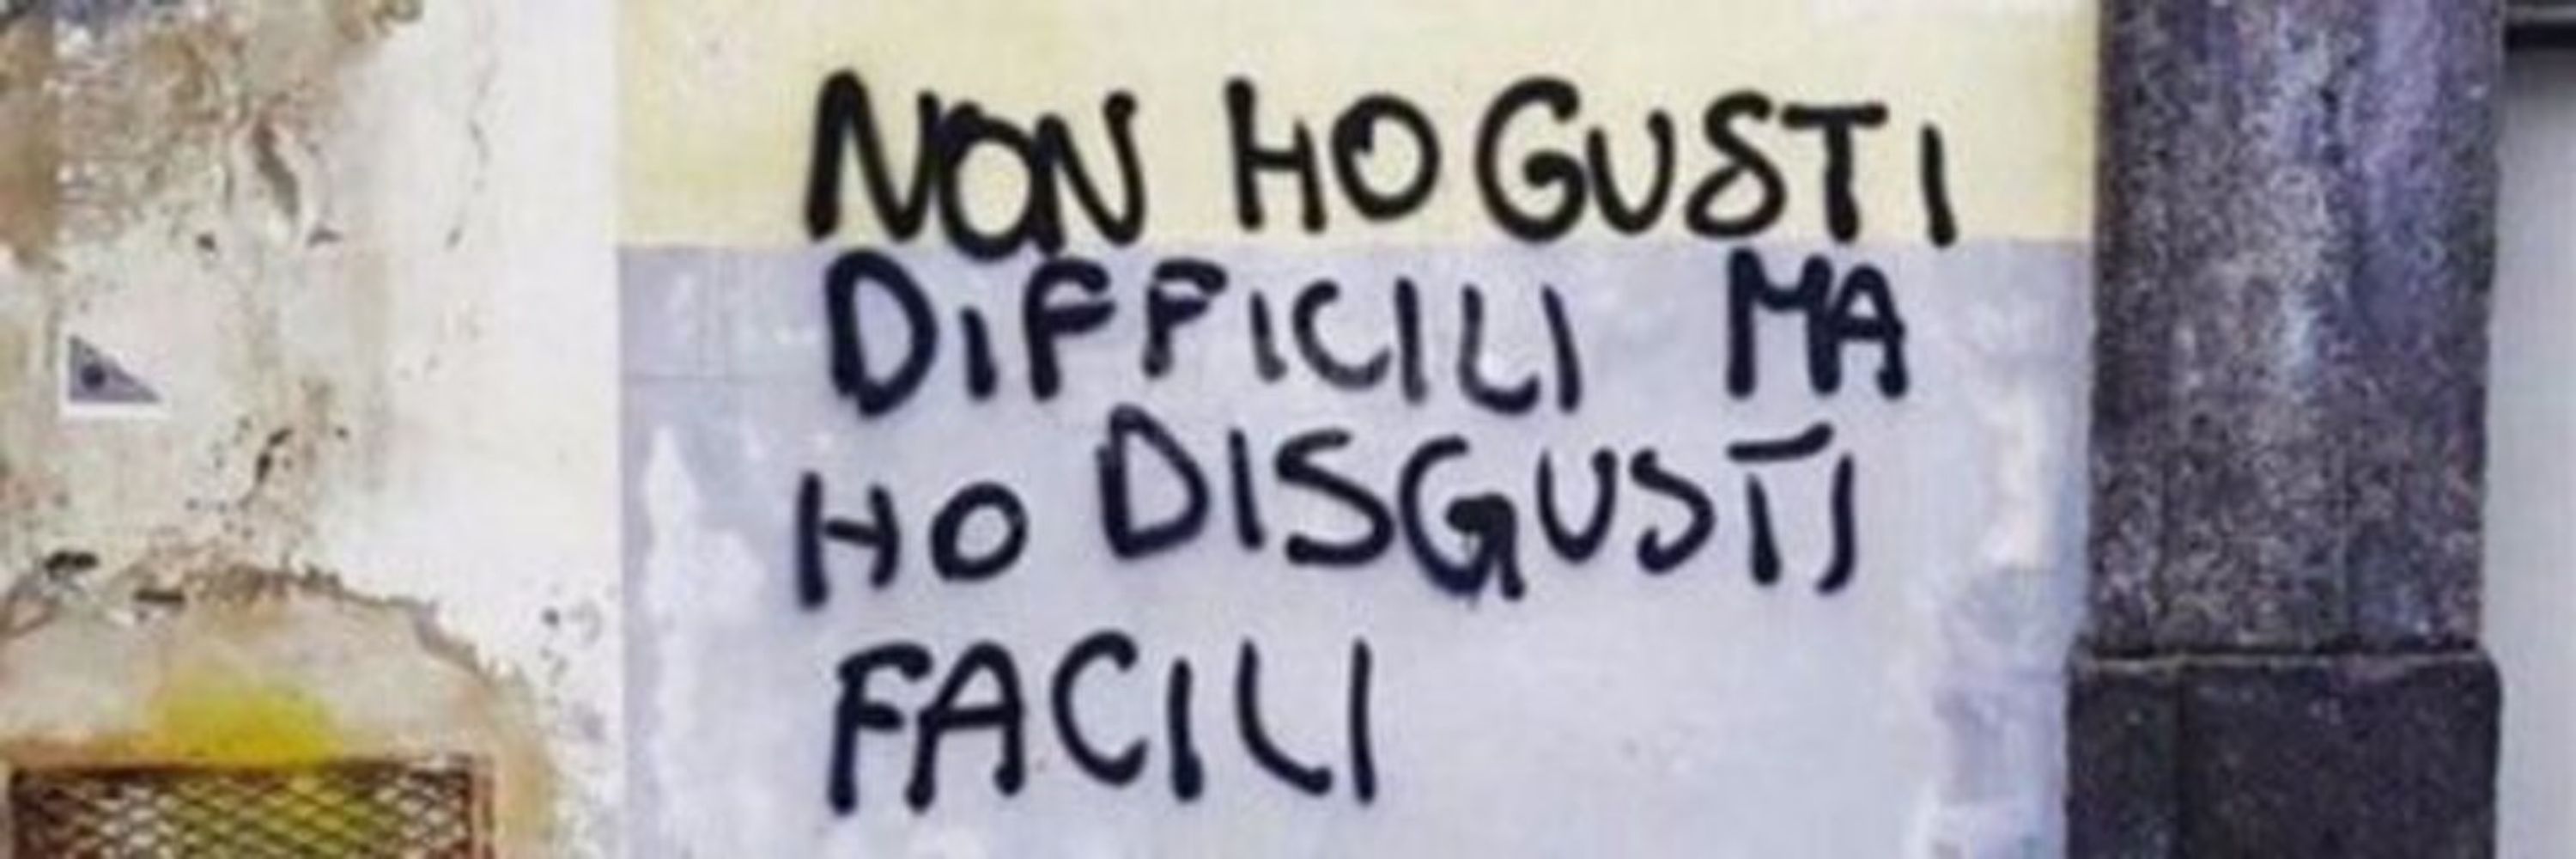 NON HO GUSTI
DIFFICILI MA
HO DISGUSTI
FACILI